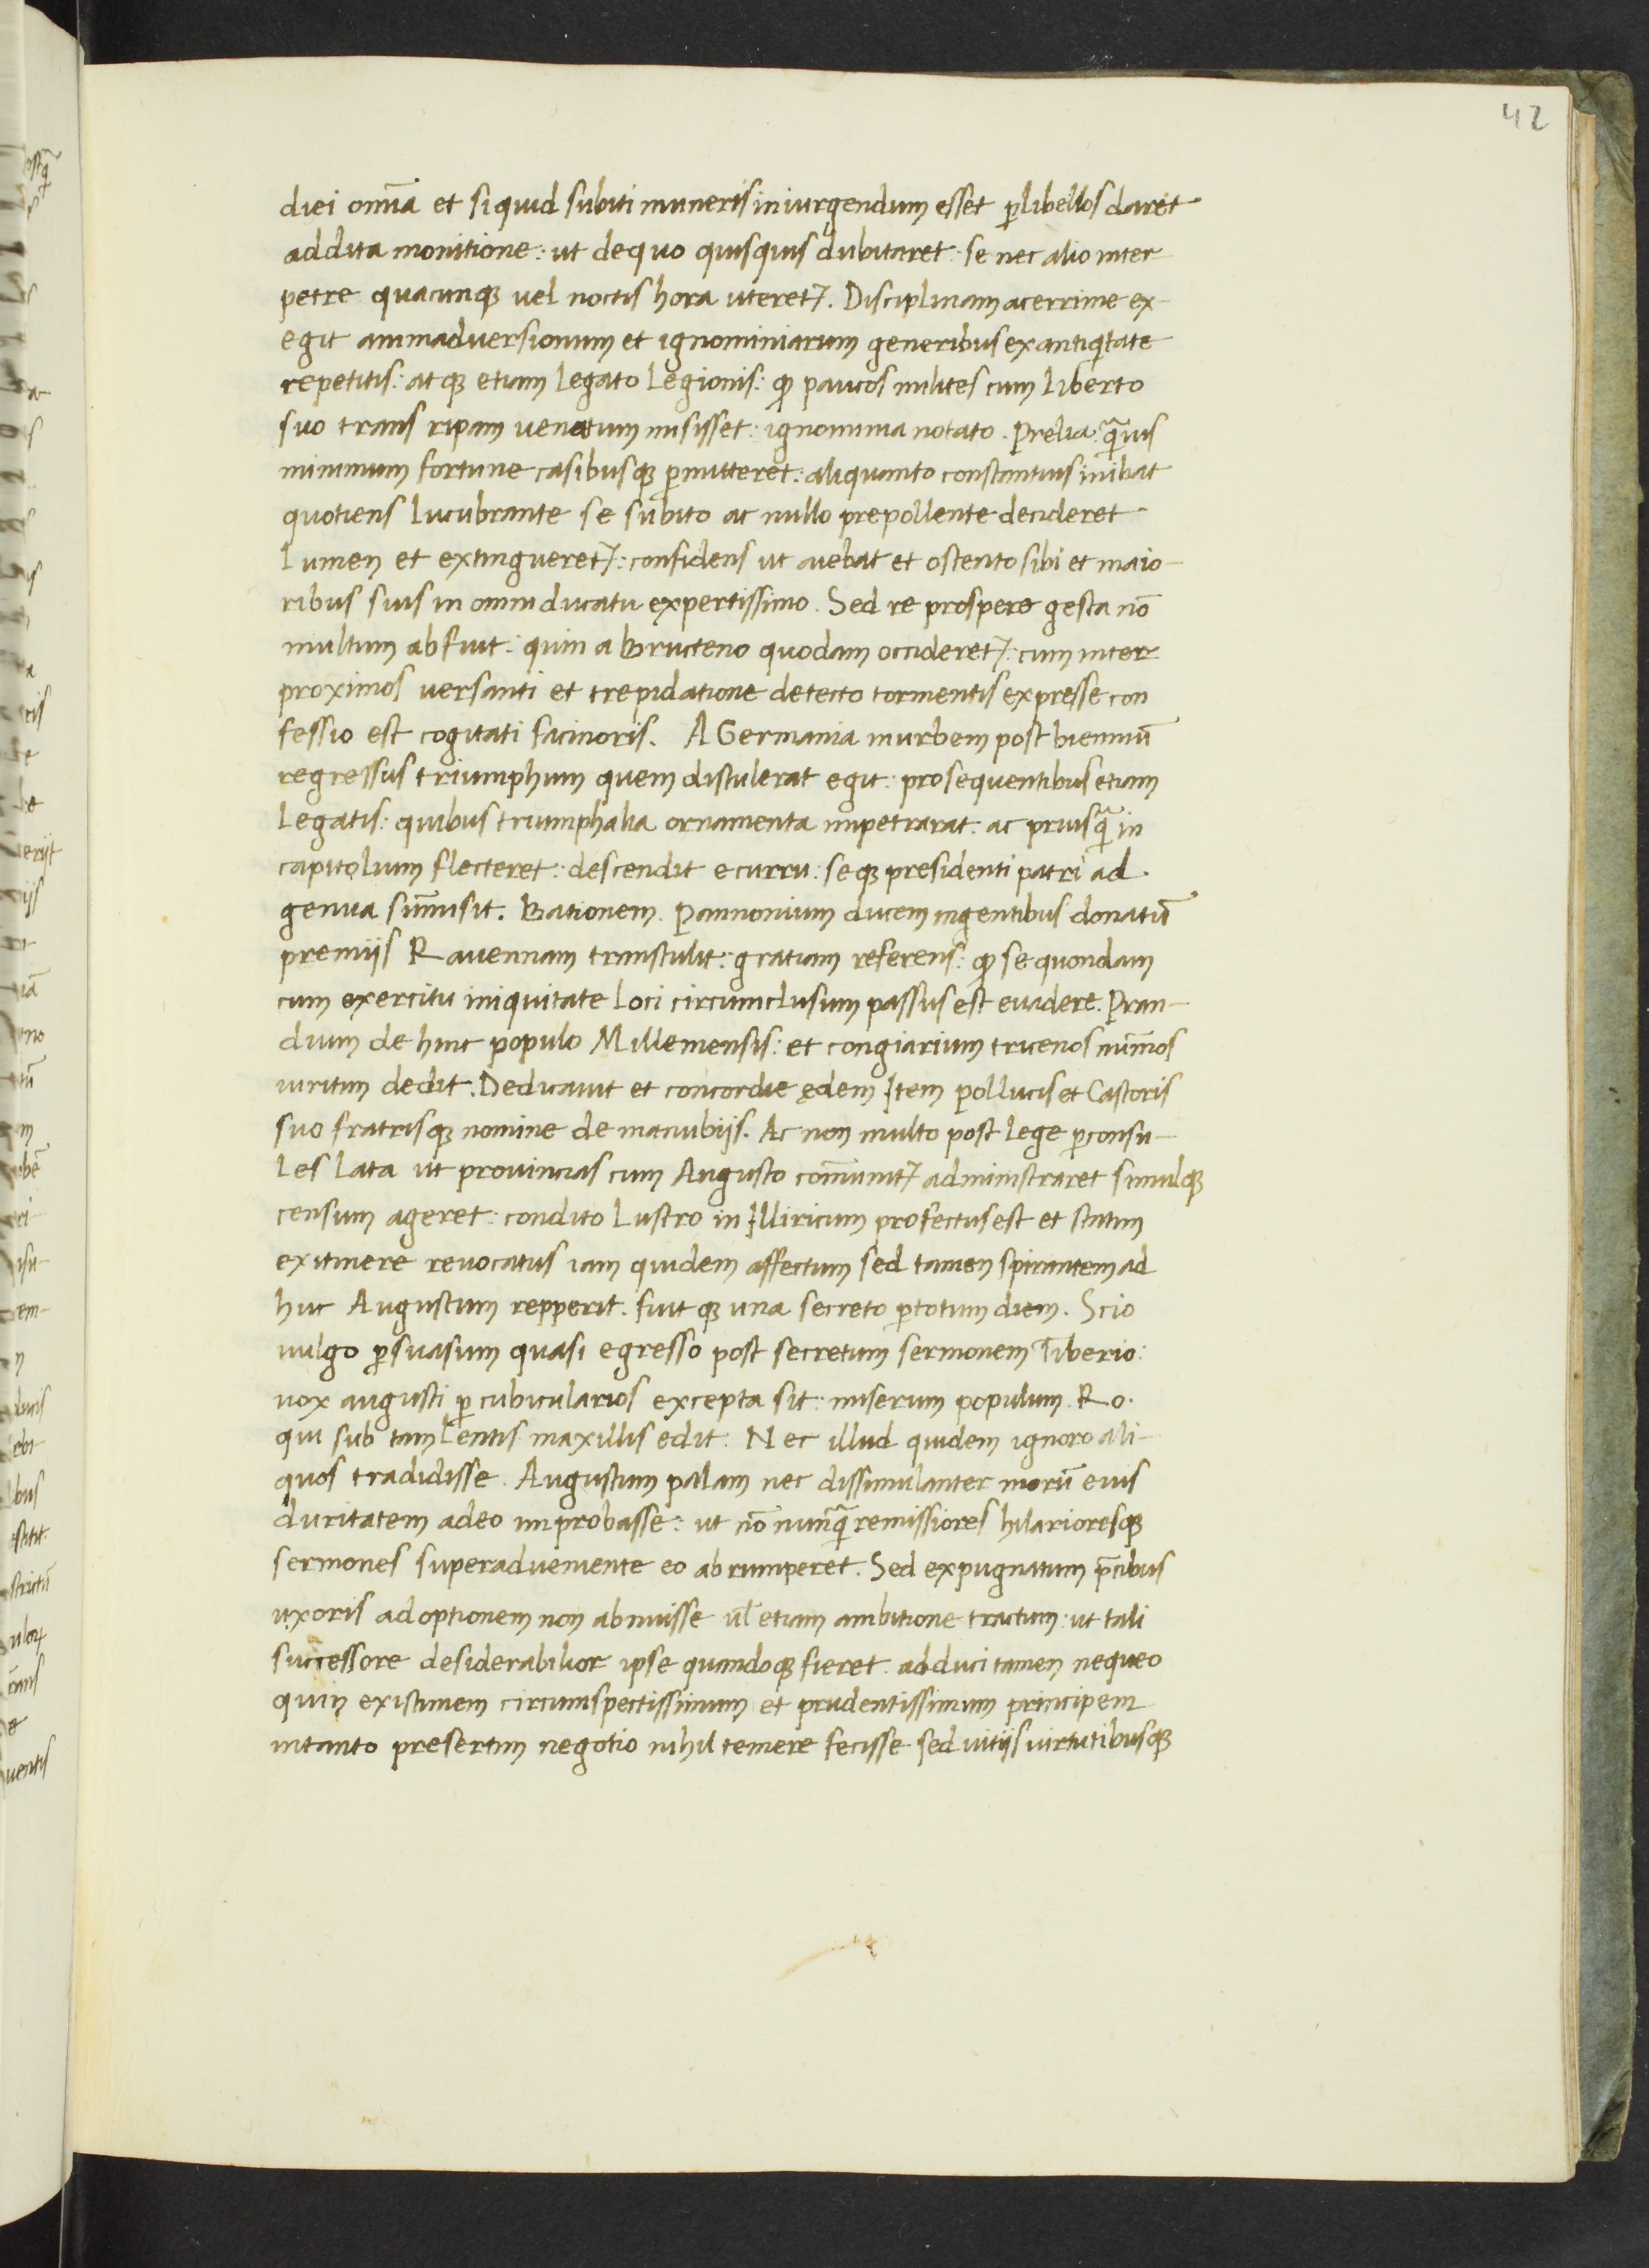 42
diei om̄ia et si quid subiti muneris iniurgendum esset ꝑ libellos daret
addita monitione: ut de quo quisquis dubitaret: se nec alio inter-
petre quacunqꝫ uel noctis hora uteret᷑. Disciplinam acerrime ex-
egit animaduersionum et ignominiarum generibus ex antiq̇tate
repetitis: atqꝫ etiam Legato Legionis: ꝙ paucos milites cum Liberto
suo trans ripam uenatum misisset: ignominia notato. Prelia: q̃uis
minimum fortune casibusqꝫ ꝑmitteret: aliquanto constantius inibat
quotiens Lucubrante se subito ac nullo prepollente decideret
Lumen et extingueret᷑: confidens ut aiebat et ostento sibi et maio-
ribus suis in omni ducatu expertissimo. Sed re prospere gesta nō
multum abfuit: quin a Bructeno quodam occideret᷑: cum inter
proximos uersanti et trepidatione detecto tormentis expresse con
fessio est cogitati facinoris. A Germania in urbem post bienniū
regressus triumphum quem distulerat egit: prosequentibus etiam
Legatis: quibus triumphalia ornamenta impetrarat: ac priusq̃ in
capitolium flecteret: descendit e curru: seqꝫ presidenti patri ad
genua sūmisit. Bationem. Pannonium ducem ingentibus donatū
premiis Rauennam transtulit: gratiam referens: ꝙ se quondam
cum exercitu iniquitate Loci circumclusum passus est euadere. Pran-
dium de hinc populo Millemensis: et congiarium tricenos nūmos
uiritim dedit. Dedicauit et concordie ędem Item pollucis et Castoris
suo fratrisqꝫ nomine de manubiis. Ac non multo post Lege ꝑ consu-
Les Lata ut prouincias cum Augusto cōmunit᷑ administraret simulqꝫ
censum ageret: condito Lustro in Illiricum profectus est et statim
ex itinere reuocatus iam quidem affectum sed tamen spirantem ad
huc Augustum repperit. fuitqꝫ una secreto ꝑ totum diem. Scio
uulgo ꝑsuasum quasi egresso post secretum sermonem Tiberio:
uox augusti ꝑ cubicularios excepta sit: miserum populum. Ro.
qui sub tam Lentis maxillis edit: Nec illud quidem ignoro ali-
quos tradidisse. Augustum palam nec dissimulanter morū eius
duritatem adeo improbasse: ut nō nunq̃ remissiores hilarioresqꝫ
sermones superadueniente eo abrumperet. Sed expugnatum p̄cibus
uxoris adoptionem non abnuisse ul̄ etiam ambitione tractum: ut tali
successore desiderabilior ipse quandoqꝫ fieret. adduci tamen nequeo
quin existimem circumspectissimum et prudentissimum principem
in tanto presertim negotio nihil temere fecisse sed uitiis uirtutibusqꝫ